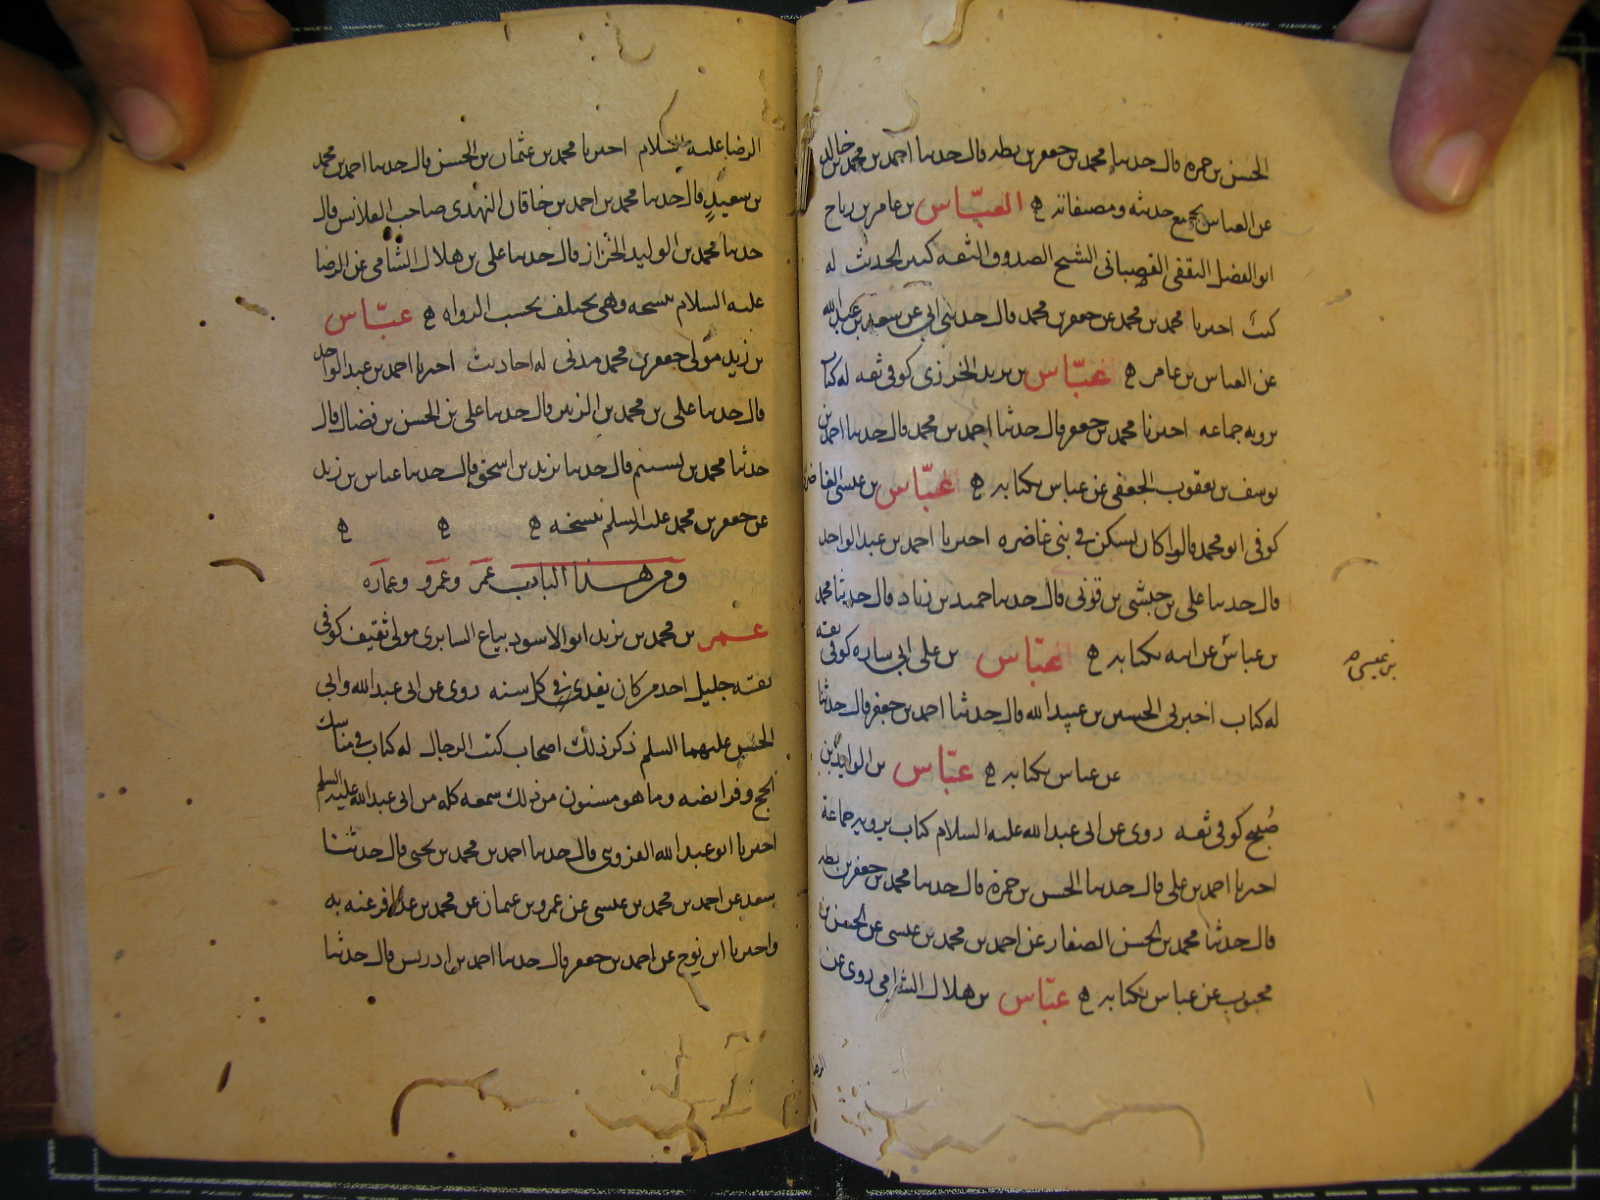 الحسن بن حمزه قال حدثنا محمد بن جعفر بن بطه قال حدثنا احمد بن محمد بن خالد
عن العباس بجميع حدثه ومصنفاته ۿ العبّاس بن عامر بن رباح
ابو الفضل الثقفى القصبانى الشيخ الصدوق الثقه كثير الحديث له
كتب اخبرنا محمد بن محمد عن جعفر بن محمد قال حدثنى ابى عن سعد بن عبد الله
عن العباس بن عامر ۿ عبّاس بن يزيد الخرزى كوفى ثقه له كتاب
يرويه جماعه اخبرنا محمد بن جعفر قال حدثنا احمد بن محمد قال حدثنا احمد بن
يوسف بن يعقوب الجعفى عن عباس بكتابه ۿ عبّاس بن عيسى الغاضرى
كوفى ابو محمد قالوا كان يسكن فى بنى غاضره اخبرنا احمد بن عبد الواحد
قال حدثنا على بن حبشى بن قونى قال حدثنا حميد بن زياد قال حدثنا محمد
بن عباس عن ابيه بكتابه ۿ عبّاس بن على ابى ساره كوفى ثقه
بن عيسى
له كتاب اخبرنى الحسين بن عبيد الله قال حدثنا احمد بن جعفر قال حدثنا
عن عباس بكتابه ۿ عبّاس بن الوليد بن
صُبيح كوفى ثقه روى عن ابى عبد الله عليه السلام كتاب يرويه جماعة
اخبرنا احمد بن على قال حدثنا الحسن بن حمزة قال حدثنا محمد بن جعفر بن بطه
قال حدثنا محمد بن الحسن الصفار عن احمد بن محمد بن عيسى عن الحسن بن
محبوب عن عباس بكتابه ۿ عبّاس بن هلال الشامى روى عن
الرضا
الرضا عليه السلام اخبرنا محمد بن عثمان بن الحسن قال حدثنا احمد بن محمد
بن سعيد قال حدثنا محمد بن احمد بن خاقان النهدى صاحب القلانس قال
حدثنا محمد بن الوليد الخزاز قال حدثنا على بن هلال الشامى عن الرضا
عليه السلام بنسخه وهى يختلف بحسب الرواه ۿ عبّاس
بن زيد مولى جعفر بن محمد مدنى له احاديث اخبرنا احمد بن عبد الواحد
قال حدثنا على بن محمد بن الزبير قال حدثنا على بن الحسن بن فضال قال
حدثنا محمد بن تسنيم قال حدثنا يزيد بن اسحق قال حدثنا عباس بن زيد
عن جعفر بن محمد عليه السلم بنسخه ۿ ۿ ۿ
ومن هذا الباب عمر وعمرو وعماره
عمر بن محمد بن يزيد ابو الاسود بياع السابرى مولى ثقيف كوفى
ثقه جليل احد من كان يفد فى كل سنه روى عن ابى عبد الله وابى
الحسن عليهما السلم ذكر ذلك اصحاب كتب الرجال له كتاب فى مناسك
الحج وفرائضه وما هو مسنون من ذلك سمعه كله من ابى عبد الله عليه السلم
اخبرنا ابو عبد الله القزوينى قال حدثنا احمد بن محمد بن يحيى قال حدثنا
سعد عن احمد بن محمد بن عيسى عن عمرو بن عثمان عن محمد بن عذافر عنه به
واخبرنا ابن نوح عن احمد بن جعفر قال حدثنا احمد بن ادريس قال حدثنا